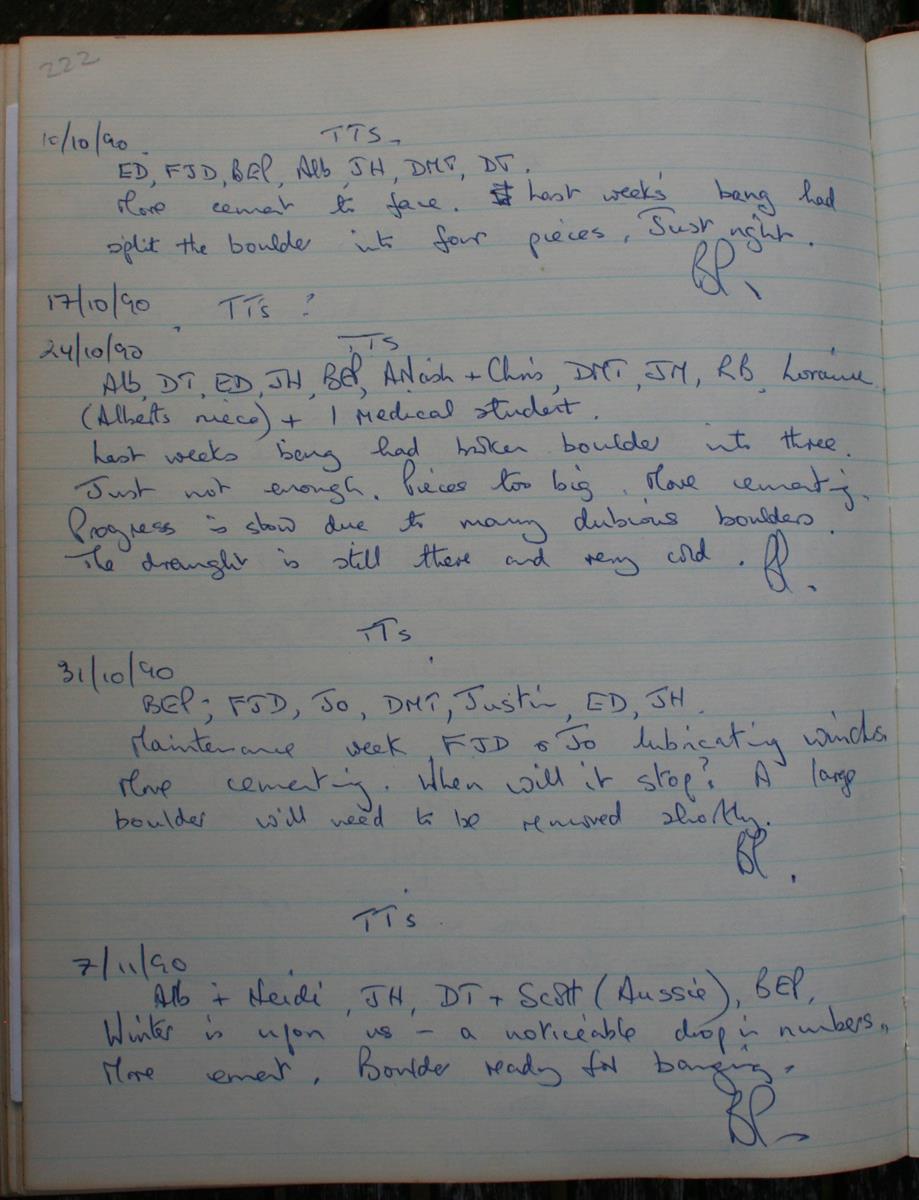 222
10/10/90. TTS.
ED, FJD, BEP, Alb, JH, DMT, DT.
More cement to face. Last weeks bang had
split the boulder into four pieces, Just right.
BP.
17/10/90 TTs ?
24/10/90 TTS
Alb, DT, ED, JH, BEP, ANish + Chris, DMT, JM, RB, Loraine
(Alberts niece) + 1 Medical student.
Last weeks bang had broken boulder into three.
Just not enough. Pieces too big. More cementing.
Progress is slow due to many dubious boulders.
The draught is still there and very cold. BP.
TTs
31/10/90
BEP, FJD, Jo, DMT, Justin, ED, JH.
Maintenance week FJD & Jo lubricating winch.
More cementing. When will it stop? A large
boulder will need to be removed shortly.
BP.
TTs
7/11/90
Alb + Heidi, JH, DT + Scott (Aussie), BEP,
Winter is upon us - a noticeable drop in numbers.
More cement. Boulder ready for banging.
BP.